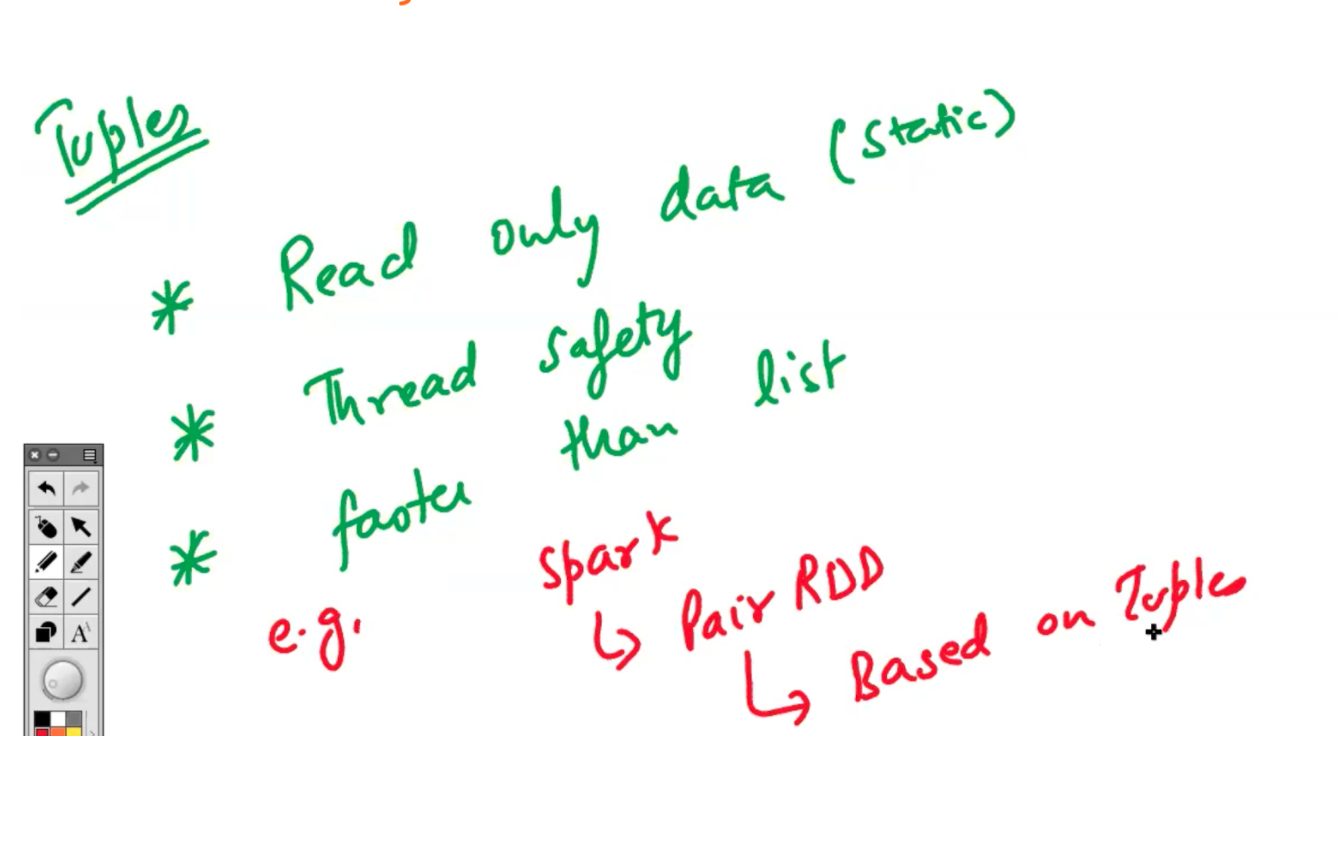 Tuples
* Read only data (static)
* Thread safety
* faster than list
e.g. Spark
↳ Pair RDD
↳ Based on Tuples